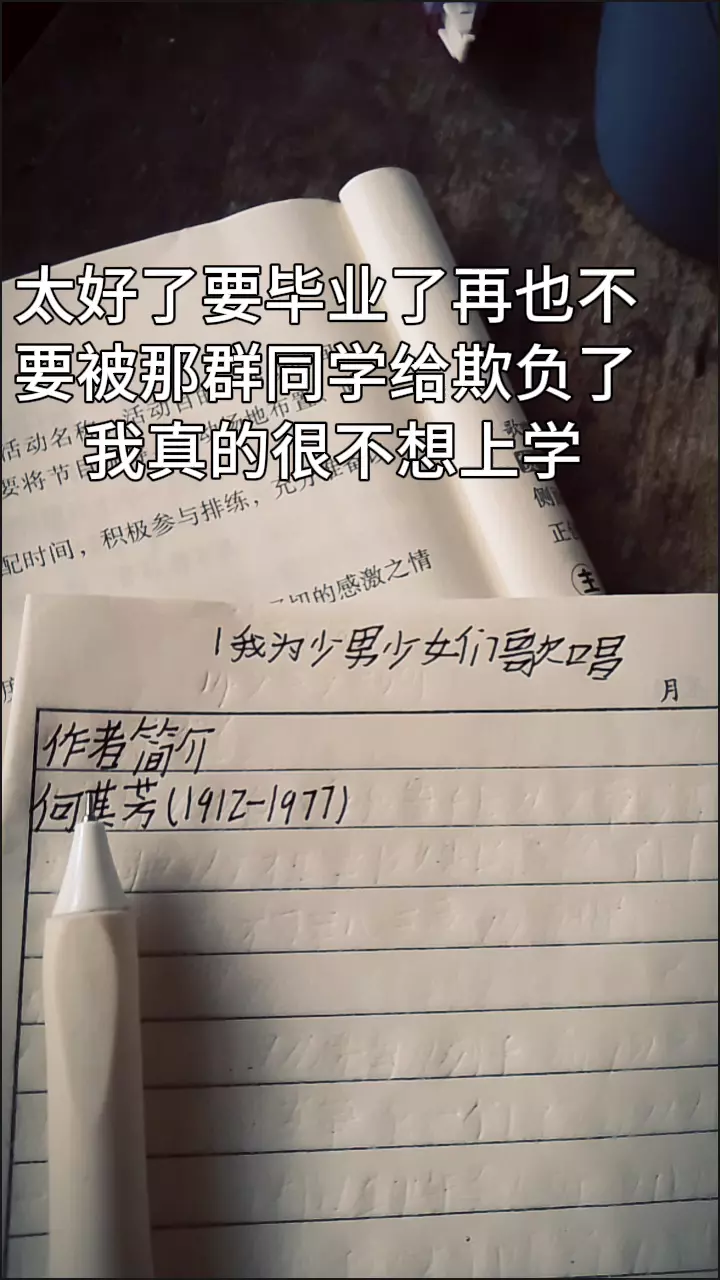 太好了要毕业了再也不
要被那群同学给欺负了
我真的很不想上学
活动名称、活动目的
动场地布置、
要将节目
配时间，积极参与排练，充分准备
切的感激之情
歌
侧
正
主
1我为少男少女们歌唱
月
作者简介
何其芳(1912-1977)